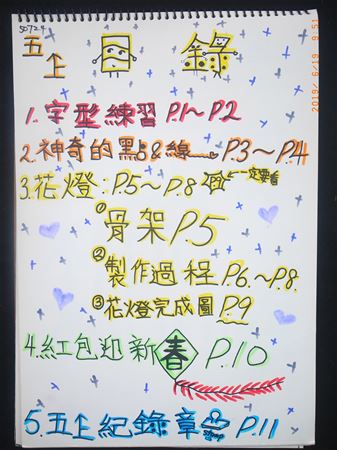 50727
五上 目錄
1. 字型練習 P.1~P2
2. 神奇的點&線 P.3~P.4
3. 花燈:P.5~P.8 ←一定要看
① 骨架 P.5
② 製作過程 P.6.~P.8.
③ 花燈完成圖 P.9
4. 紅包迎新春 P.10
5. 五上紀錄章 stamp P.11
2019/6/19 9:51